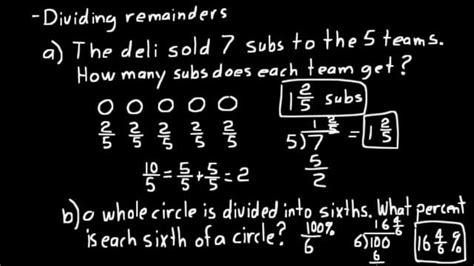 -Dividing remainders
a) The deli sold 7 subs to the 5 teams.
How many subs does each team get?
O O O O O
1 2/5 subs
2/5 2/5 2/5 2/5 2/5
1 2/5
5)7 = 1 2/5
5
2
10/5 = 5/5 + 5/5 = 2
b) a whole circle is divided into sixths. What percent
is each sixth of a circle?
100%/6
16 4/6
6)100
6
16 4/6 %